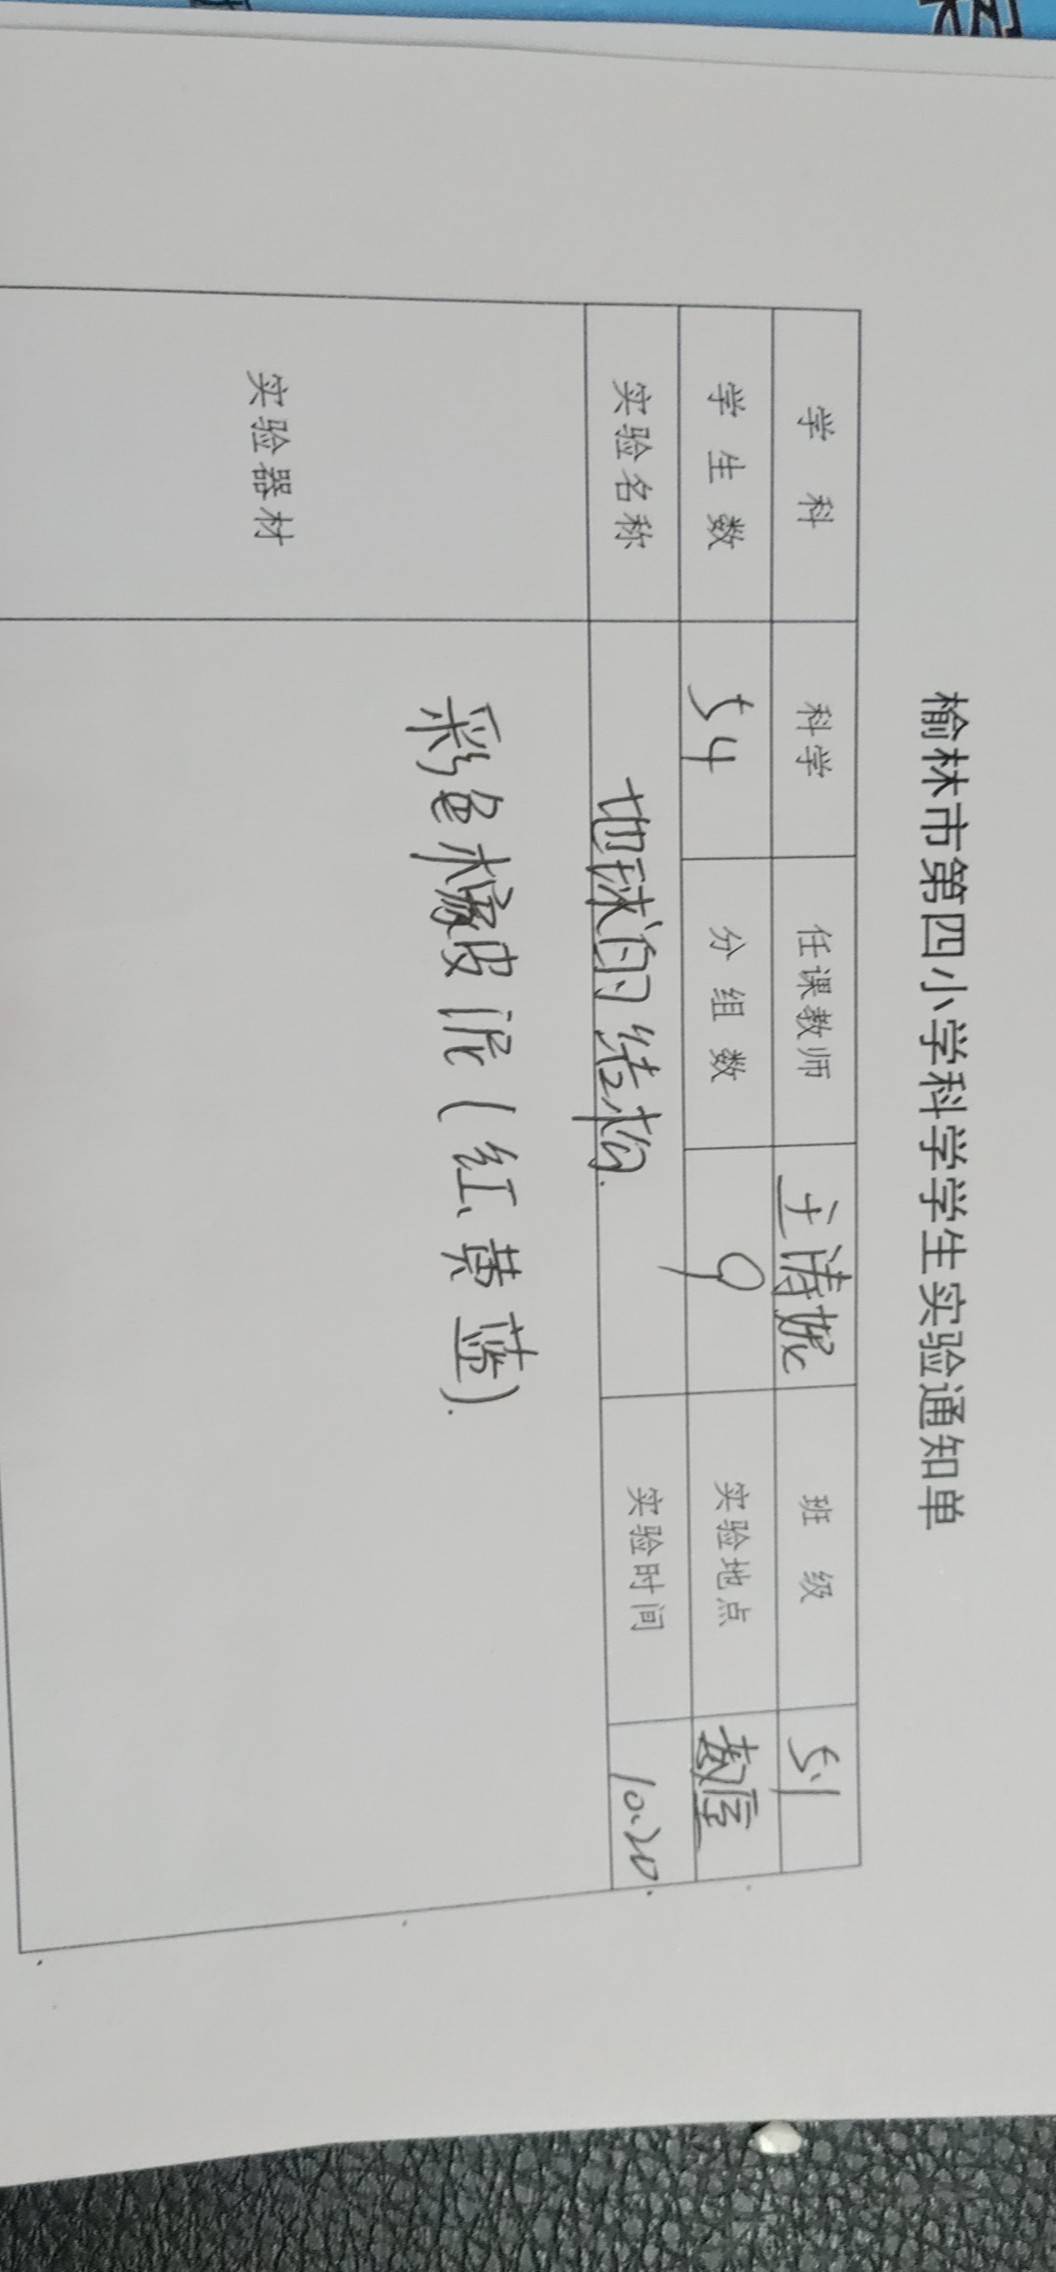 榆林市第四小学科学学生实验通知单
学科 科学 任课教师 王涛妮 班级 5.1
学生数 54 分组数 9 实验地点 教室
实验名称 地球的结构. 实验时间 10.20.
实验器材 彩色橡皮泥(红、黄 蓝).